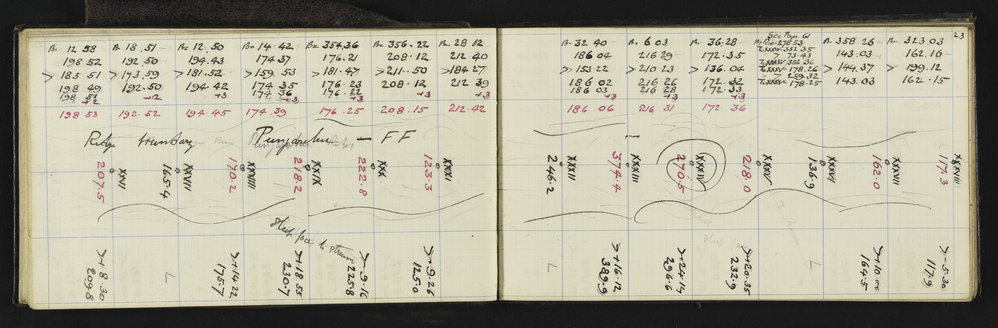 Be 12 58
198 52
> 185 51
198 49
198 51
+2
198 53
Be 18. 51
192. 50
> 173. 59
192. 50
+2
192. 52
Be 12. 50
194. 43
> 181. 52
194. 42
+3
194. 45
Be 14. 42
174 37
> 159. 53
174 35
174 36
+3
174. 39
Be 354.36
176. 21
> 181. 47
176 23
176. 22
+3
176. 25
Be 356. 22
208. 12
> 211. 50
208. 12
+3
208. 15
Be 28 12
212 40
> 184. 27
212 39
+3
212. 42
Be 32 40
186 04
> 153 22
186 02
186 03
+3
186 06
Be 6 03
216 29
> 210 23
216 26
216 28
+3
216 31
Be 36.28
172. 35
> 136. 04
172. 32
172. 33
+3
172 36
See Page 61
278 53
XXXIV 352 35
> 73. 43
XXXIV 351 36
XXXIV 178. 26
> 159. 32
XXXIV 178. 25
Be 358 26
143. 03
> 144. 37
143. 03
Be 323. 03
162. 16
> 199. 12
162. 15
23
Ridge boundary
— FF
XXVI
207.5
XXVII
165.4
XXVIII
170.2
XXIX
218.2
XXX
222.8
XXXI
123.3
XXXII
246.2
XXXIII
374.4
XXXIV
270.5
XXXV
218.0
XXXVI
136.9
XXXVII
162.0
XXXVIII
117.3
Steep face to stream
>+8.30
209.8
L
>+14.22
175.7
>+18.55
230.7
>-9.16
225.8
>-9.26
125.0
L
>+16.12
389.9
>+24.14
296.6
>+20.35
232.9
L
>+10 00
164.5
>-5.30
117.9